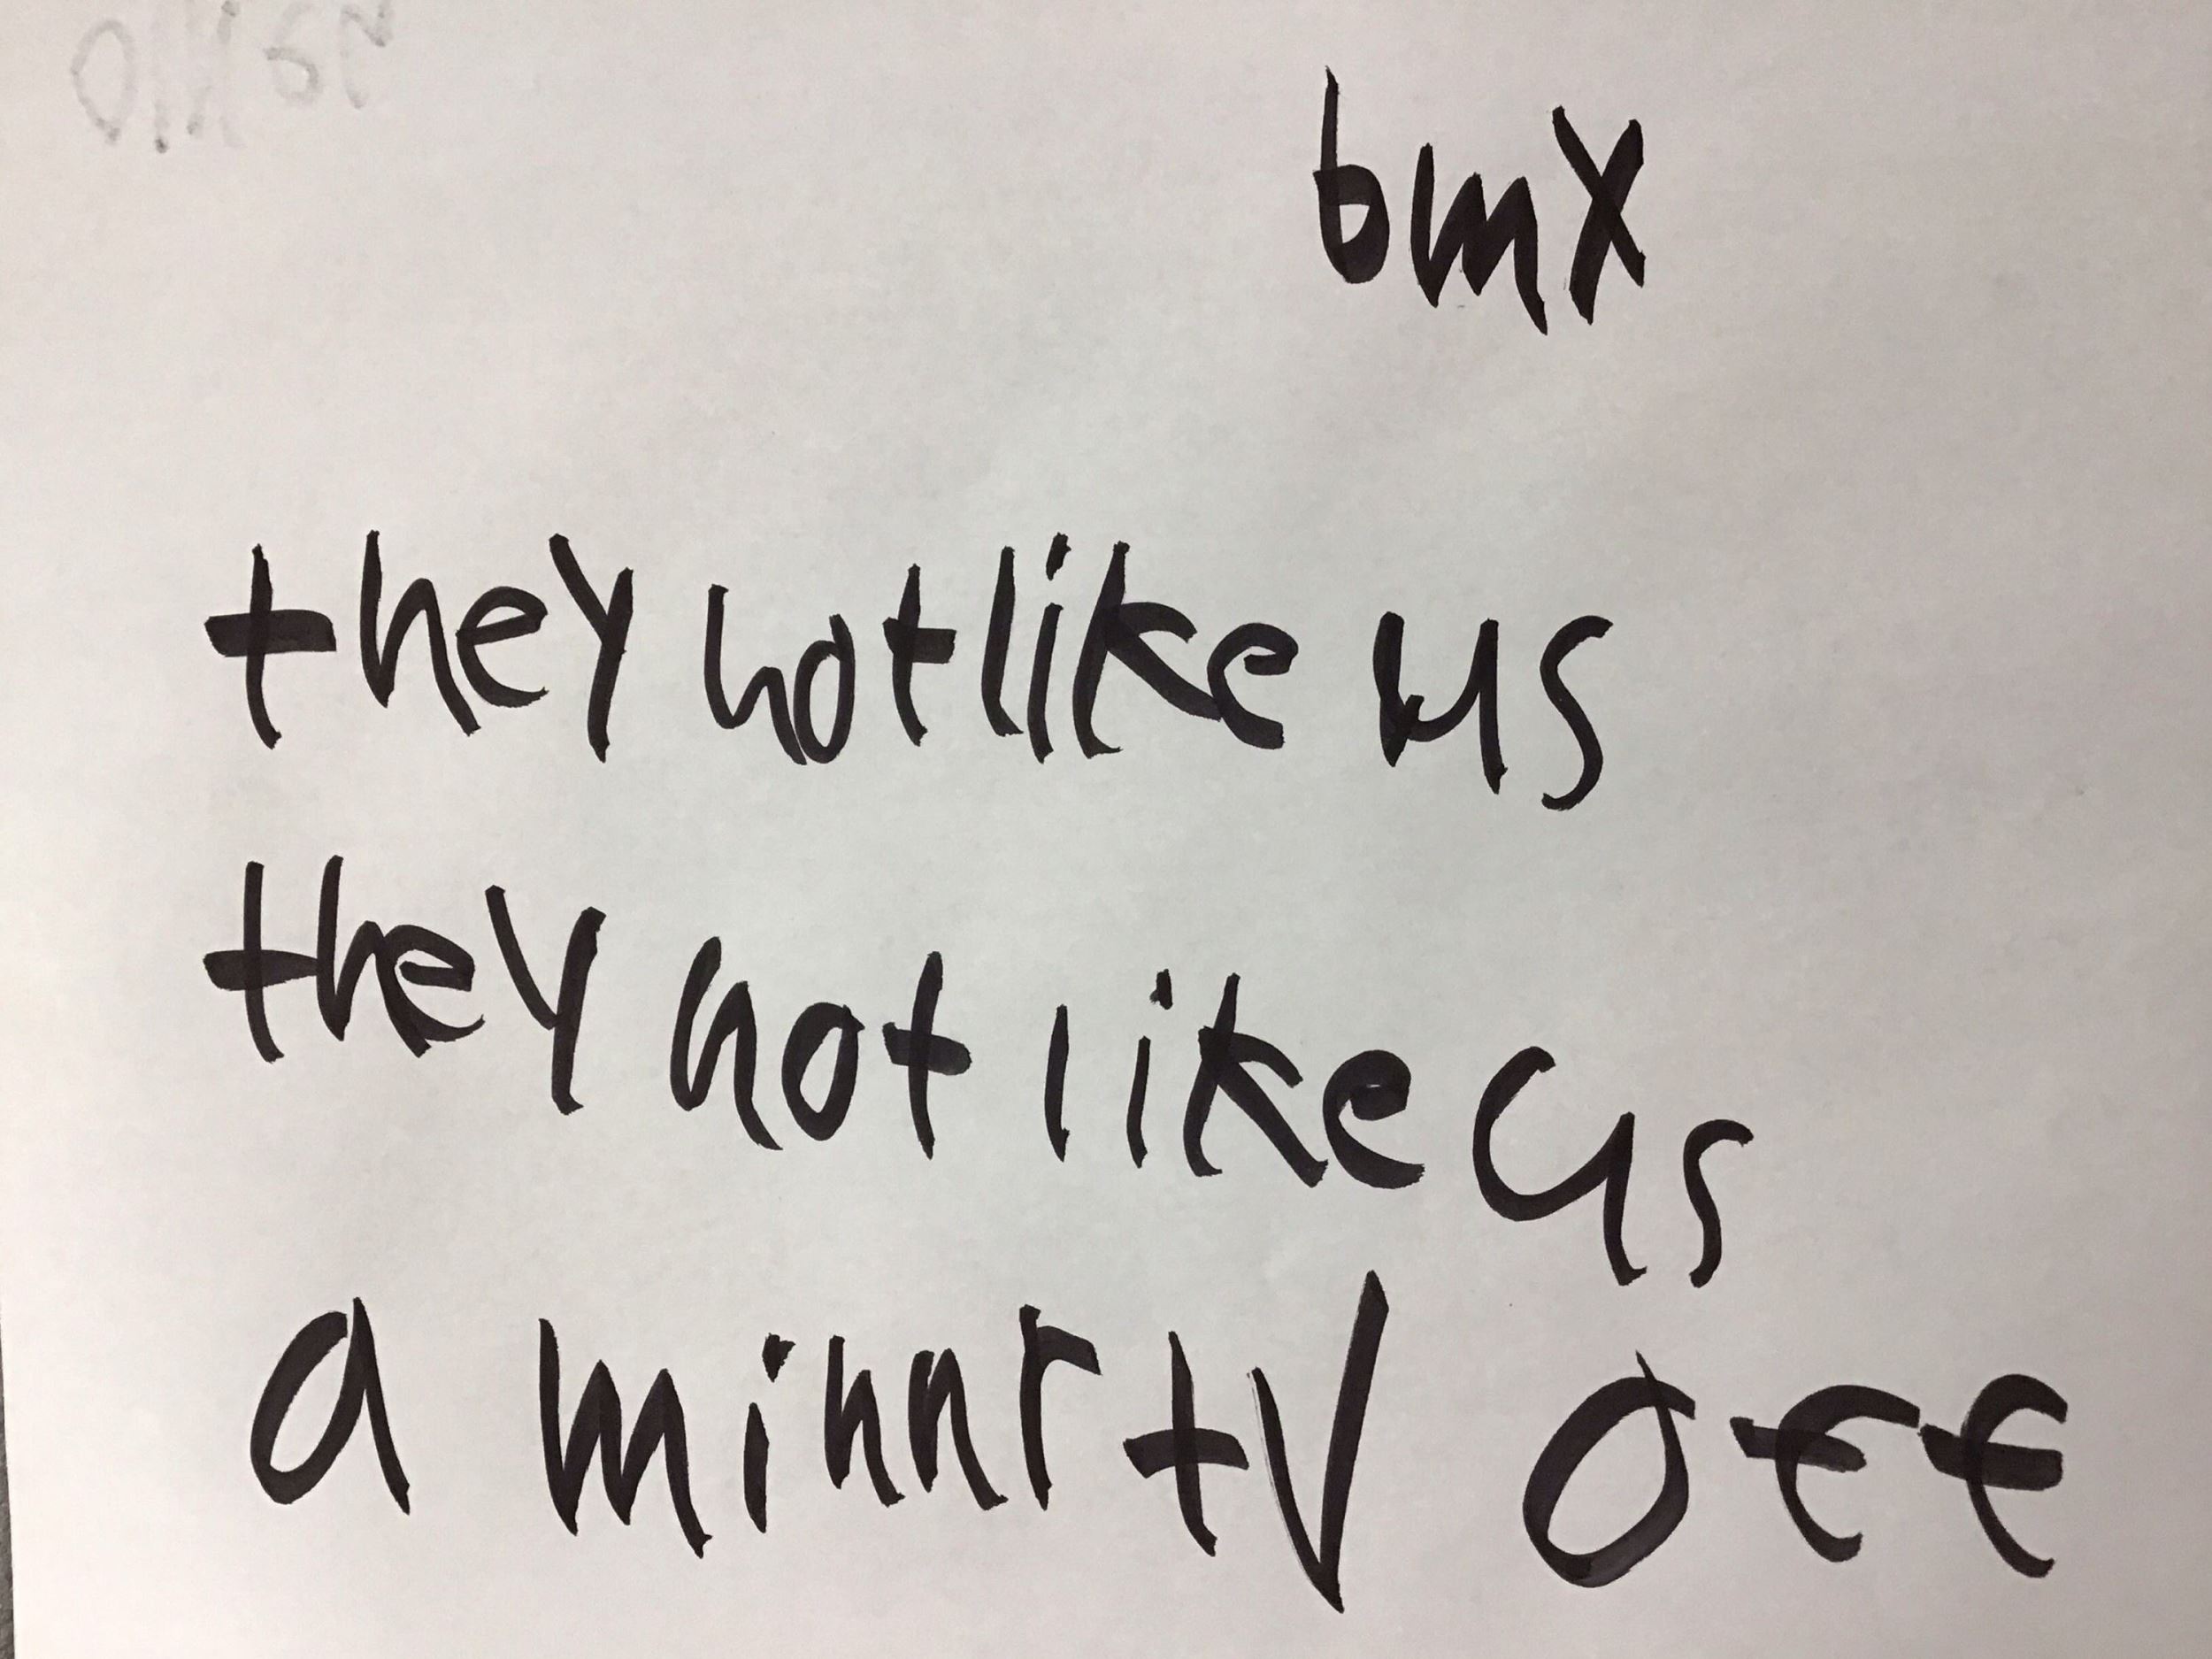 bmx
they not like us
they not like us
a minnr tv off